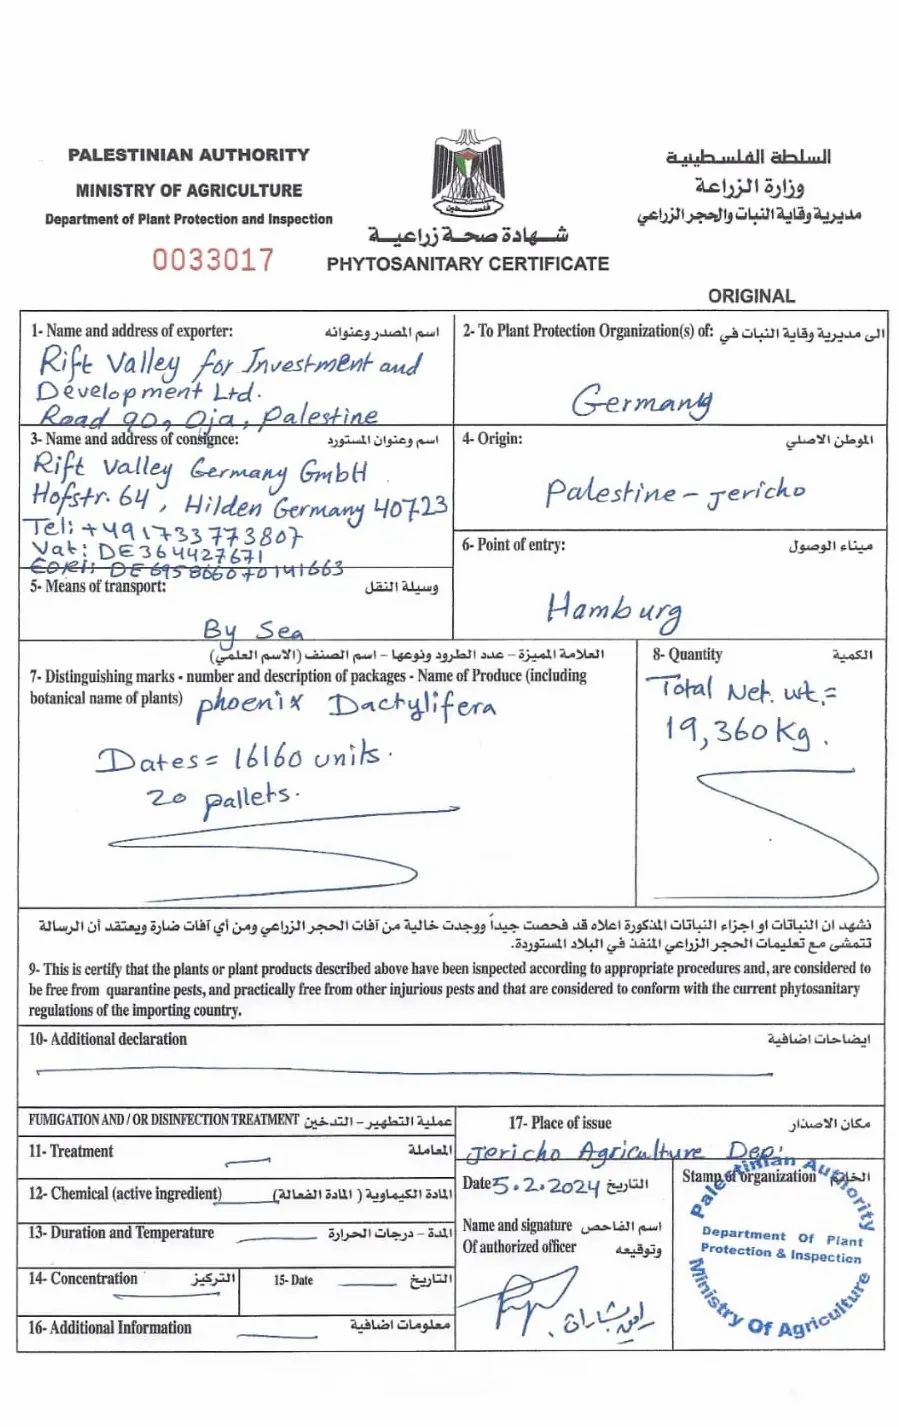 PALESTINIAN AUTHORITY
MINISTRY OF AGRICULTURE
Department of Plant Protection and Inspection
0033017
السلطة الفلسطينية
وزارة الزراعة
مديرية وقاية النبات والحجر الزراعي
فلسطين
شهادة صحة زراعية
PHYTOSANITARY CERTIFICATE
ORIGINAL
1- Name and address of exporter: اسم المصدر وعنوانه
Rift Valley for Investment and
Development Ltd.
Road 90, Oja, Palestine
2- To Plant Protection Organization(s) of: الى مديرية وقاية النبات في
Germany
3- Name and address of consignce: اسم وعنوان المستورد
Rift Valley Germany GmbH
Hofstr. 64, Hilden Germany 40723
Tel: +491733773807
Vat: DE364427671
EORI: DE695866070141663
4- Origin: الموطن الاصلي
Palestine - Jericho
5- Means of transport: وسيلة النقل
By Sea
6- Point of entry: ميناء الوصول
Hamburg
العلامة المميزة - عدد الطرود ونوعها - اسم الصنف (الاسم العلمي)
7- Distinguishing marks - number and description of packages - Name of Produce (including
botanical name of plants) phoenix Dactylifera
Dates = 16160 units.
20 pallets.
8- Quantity الكمية
Total Net. wt. =
19,360 Kg.
نشهد ان النباتات او اجزاء النباتات المذكورة اعلاه قد فحصت جيداً ووجدت خالية من آفات الحجر الزراعي ومن أي آفات ضارة ويعتقد أن الرسالة
تتمشى مع تعليمات الحجر الزراعي المنفذ في البلاد المستوردة.
9- This is certify that the plants or plant products described above have been isnpected according to appropriate procedures and, are considered to
be free from quarantine pests, and practically free from other injurious pests and that are considered to conform with the current phytosanitary
regulations of the importing country.
10- Additional declaration ايضاحات اضافية
FUMIGATION AND / OR DISINFECTION TREATMENT عملية التطهير - التدخين
11- Treatment المعاملة
12- Chemical (active ingredient) المادة الكيماوية (المادة الفعالة)
13- Duration and Temperature المدة - درجات الحرارة
14- Concentration التركيز
15- Date التاريخ
16- Additional Information معلومات اضافية
17- Place of issue مكان الاصدار
Jericho Agriculture Dep.
Date 5.2.2024 التاريخ
Name and signature اسم الفاحص
Of authorized officer وتوقيعه
Stamp of organization الخاتم
Palestinian Authority
Department Of Plant
Protection & Inspection
Ministry Of Agriculture